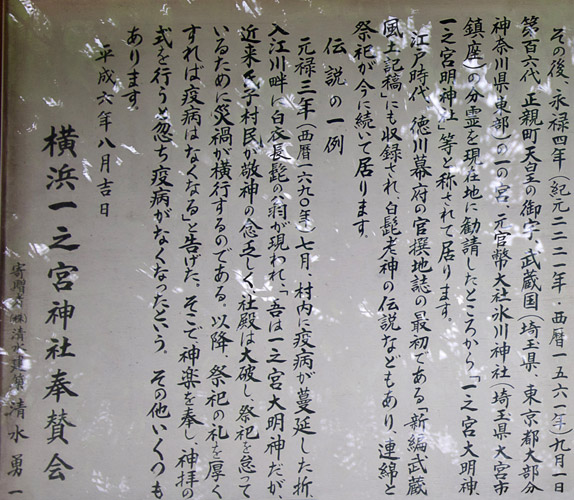 その後、永禄四年(紀元二二二一年・西暦一五六一年)九月一日
第百六代 正親町天皇の御宇、武蔵国(埼玉県、東京都大部分
神奈川県東部)の一の宮、元官幣大社氷川神社(埼玉県大宮市
鎮座)の分霊を現在地に勧請したところから「一之宮大明神
一之宮明神社」等と称されて居ります。
江戸時代、徳川幕府の官撰地誌の最初である「新編武蔵
風土記稿」にも収録され、白髭老神の伝説などもあり、連綿と
祭祀が今に続いて居ります。
伝説の一例
元禄三年(西暦一六九〇年)七月、村内に疫病が蔓延した折、
入江川畔に白衣長髭の翁が現われ、「吾は一之宮大明神だが、
近来氏子村民が敬神の念乏しく、社殿は大破し、祭祀を怠って
いるために災禍が横行するのである。以降、祭祀の礼を厚く
すれば疫病はなくなる」と告げた。そこで神楽を奉し、神拝の
式を行うと忽ち疫病がなくなったという。その他いくつも
あります。
平成六年八月吉日
横浜一之宮神社奉賛会
清水勇一